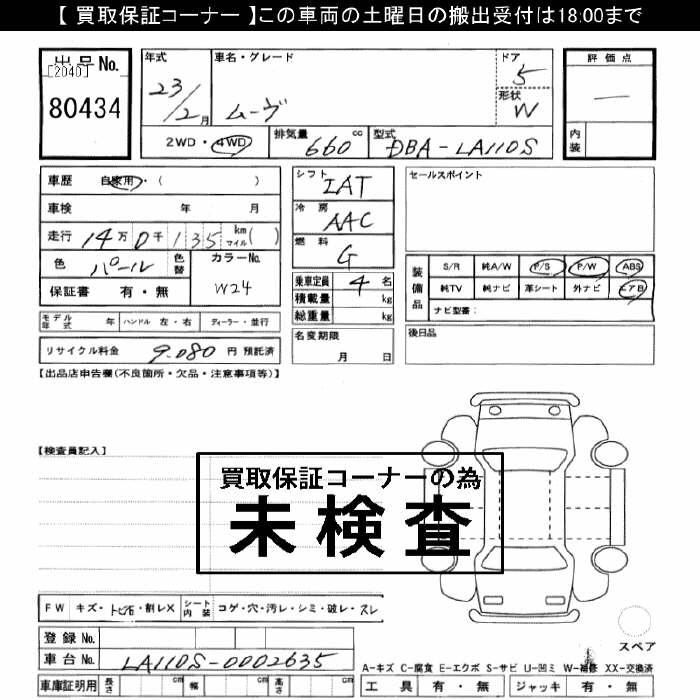 【 買取保証コーナー 】この車両の土曜日の搬出受付は18:00まで
出品No.
[2040]
80434
年式
23/2月
車名・グレード
ムーヴ
ドア
5
形状
W
評価点
—
内装
2WD・4WD
排気量
660 cc
型式
DBA-LA110S
車歴 自家用・( )
車検 年 月
走行 14万0千135 km マイル( )
色 パール 色替
カラーNo.
W24
保証書 有・無
モデル年式 年 ハンドル 左・右 ディーラー・並行
リサイクル料金 9.080 円 預託済
シフト
IAT
冷房
AAC
燃料
G
乗車定員 4 名
積載量 kg
総重量 kg
名変期限
月 日
セールスポイント
装備品
S/R 純A/W P/S P/W ABS
純TV 純ナビ 革シート 外ナビ エアB
ナビ型番:
後日品
【出品店申告欄(不良箇所・欠品・注意事項等)】
【検査員記入】
買取保証コーナーの為
未検査
FW キズ・トビ石・割レX シート内装 コゲ・穴・汚レ・シミ・破レ・スレ
登録No.
車台No. LA110S-0002635
車庫証明用 長さ cm 幅 cm 高さ cm
スペア
A-キズ C-腐食 E-エクボ S-サビ U-凹ミ W-補修 XX-交換済
工具 有・無 ジャッキ 有・無